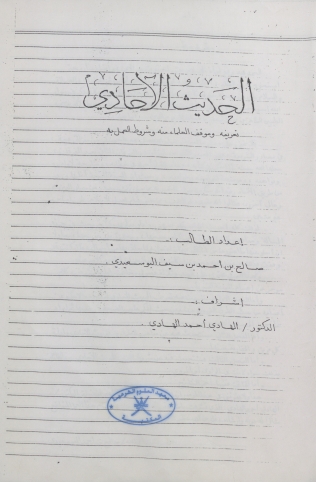 الحديث الأحادي
تعريفه وموقف العلماء منه وشروط العمل به
إعداد الطالب :
صالح بن أحمد بن سيف البوسعيدي .
إشراف :
الدكتور / الهادي أحمد الهادي .
معهد العلوم الشرعية